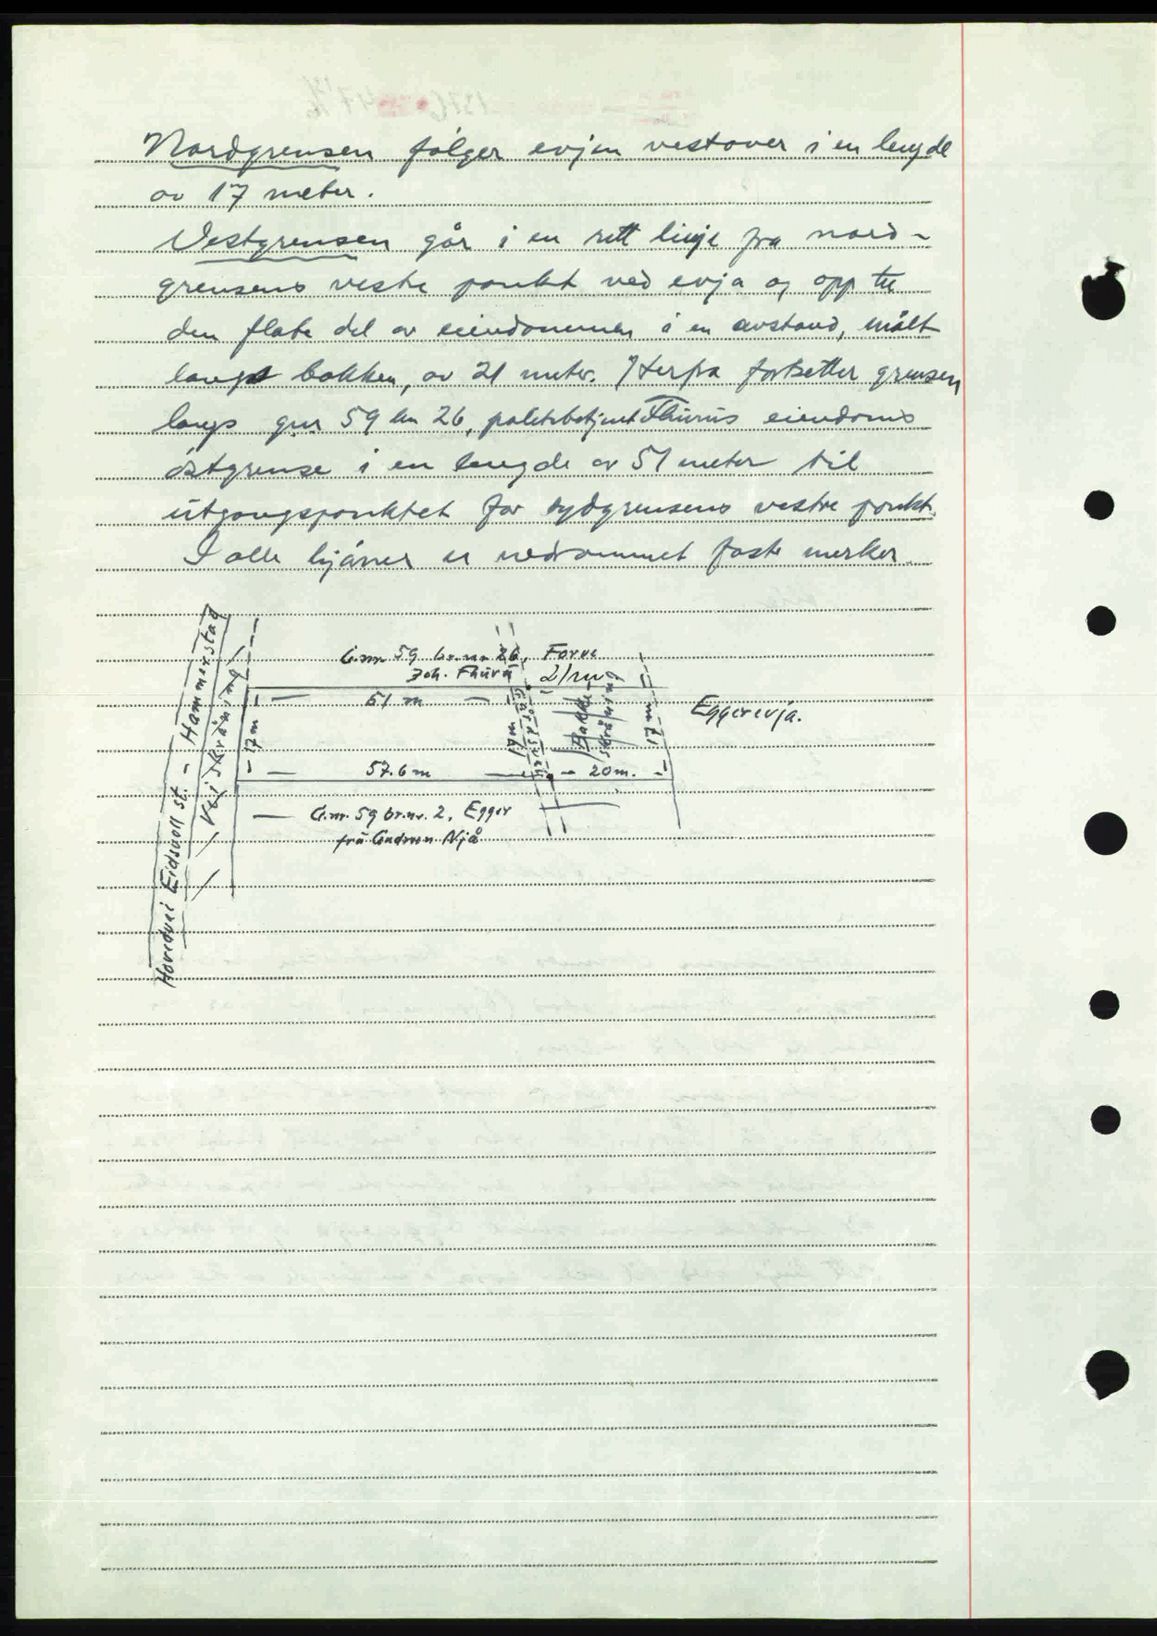 Nordgrensen følger evjen vestover i en lengde
av 17 meter.
Vestgrensen går i en rett linje fra nord-
grensens vestre punkt ved evja og opp til
den flate del av eiendommen i en avstand, målt
langs bakken, av 21 meter. Herfra fortsetter grensen
langs gnr 59 bnr 26, politibetjent Thuris eiendoms
østgrense i en lengde av 51 meter til
utgangspunktet for sydgrensens vestre punkt.
I alle hjørner er nedrammet faste merker.
G.nr. 59 br.nr. 26, Forve
Joh. Thuri
21 m
51 m
17 m
17 m
Eggerevja.
57.6 m
20 m.
Gårdsvei
Bakke-
skråning
G.nr. 59 br.nr. 2, Egger
frå Gudrun Njå
Veiskråning
Hovedvei Eidsvoll st. - Hammerstad